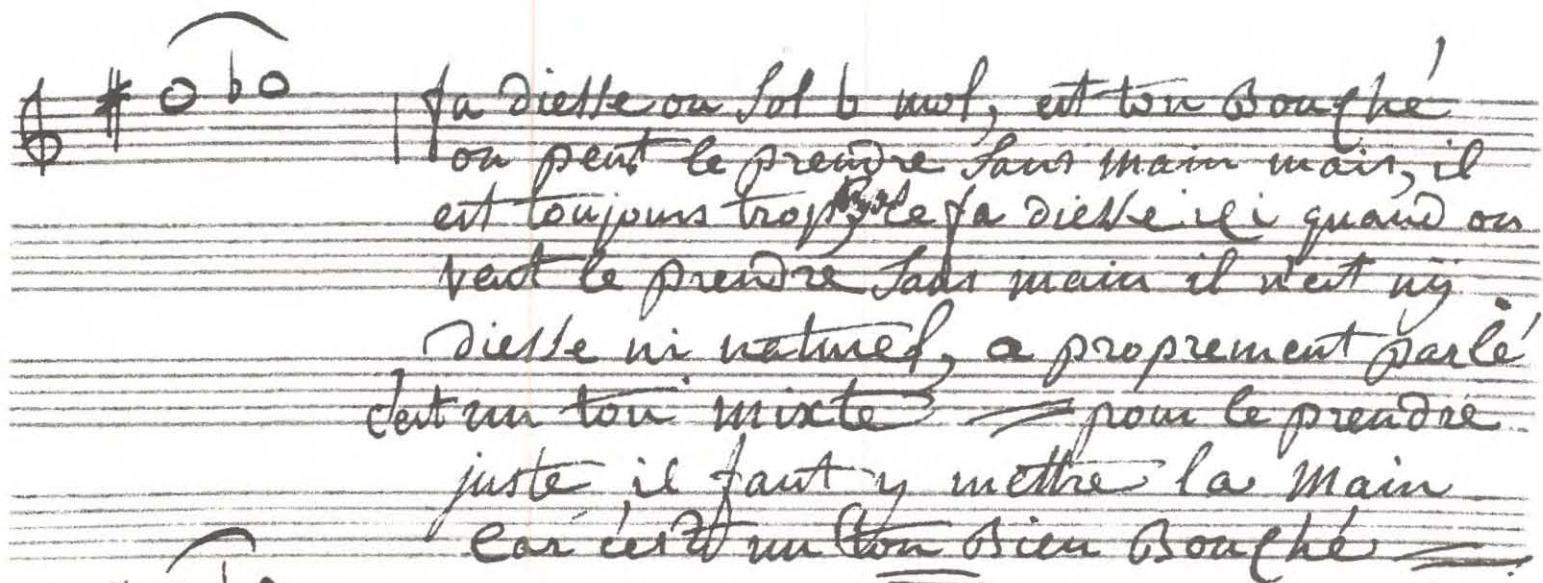 fa diesse ou Sol b mol, est ton Bouché
on peut le prendre Sans main mais, il
est toujours trop le fa diesse ici quand on
veut le prendre Sans main il n'est ny
diesse ni naturel, a proprement parlé
c'est un ton mixte = pour le prendre
juste il faut y mettre la main
Car c'est un ton Bien Bouché =